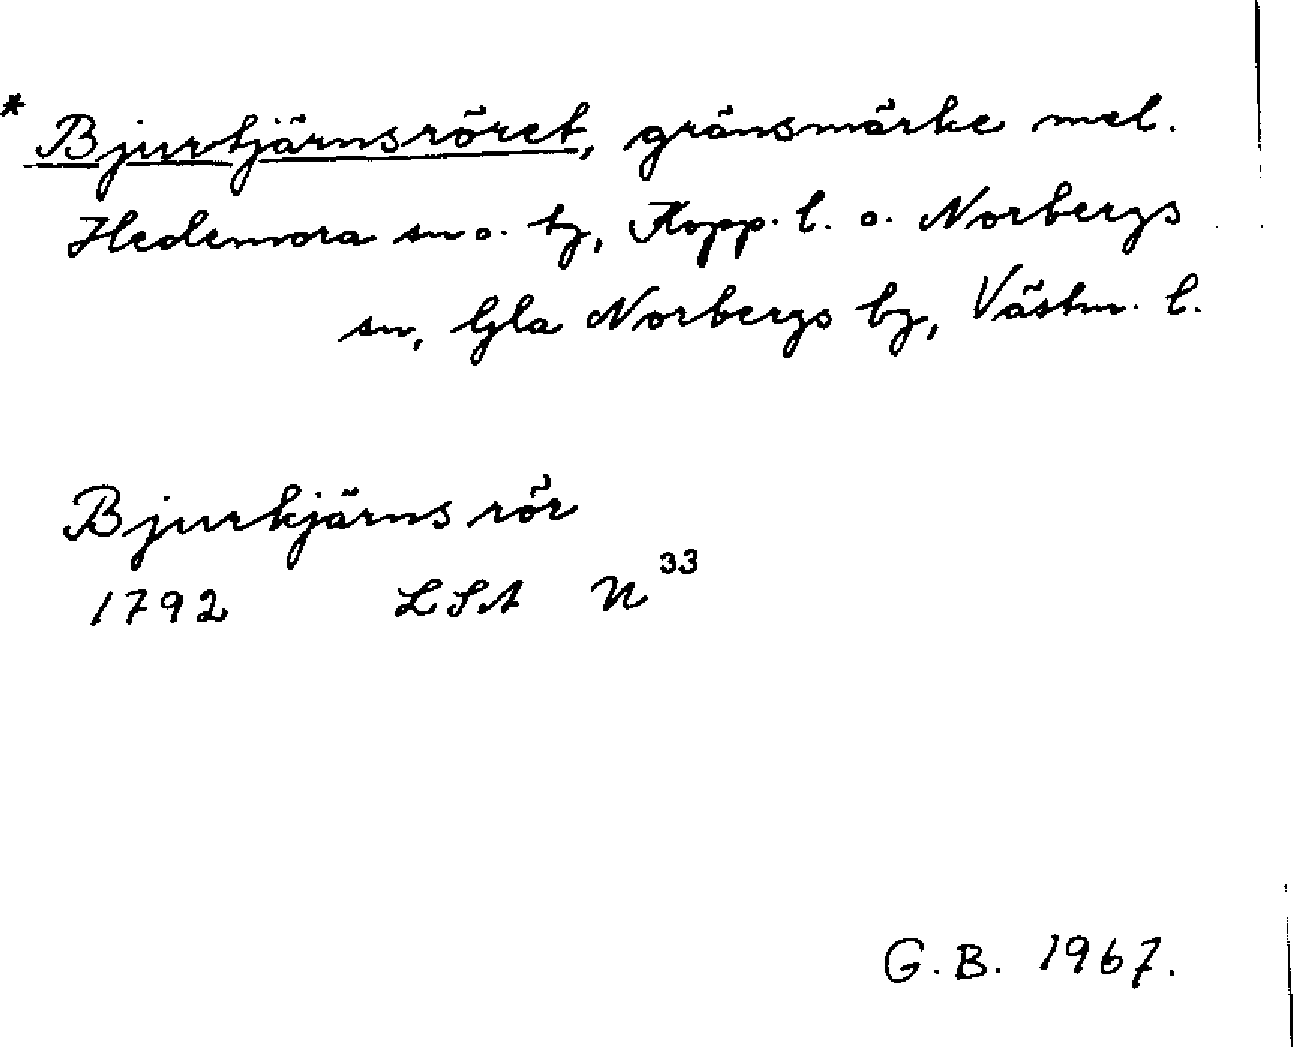 * Bjurtjärnsröret, gränsmärke mel.
Hedemora sn o. by, Kopp. l. o. Norbergs
sn, Gla Norbergs by, Västm. l.
Bjurkjärns rör
1792 LSA N 33
G.B. 1967.